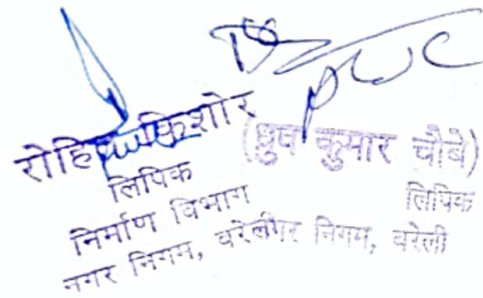 रोहित किशोर
लिपिक
निर्माण विभाग
नगर निगम, बरेली
(ध्रुव कुमार चौबे)
लिपिक
नगर निगम, बरेली